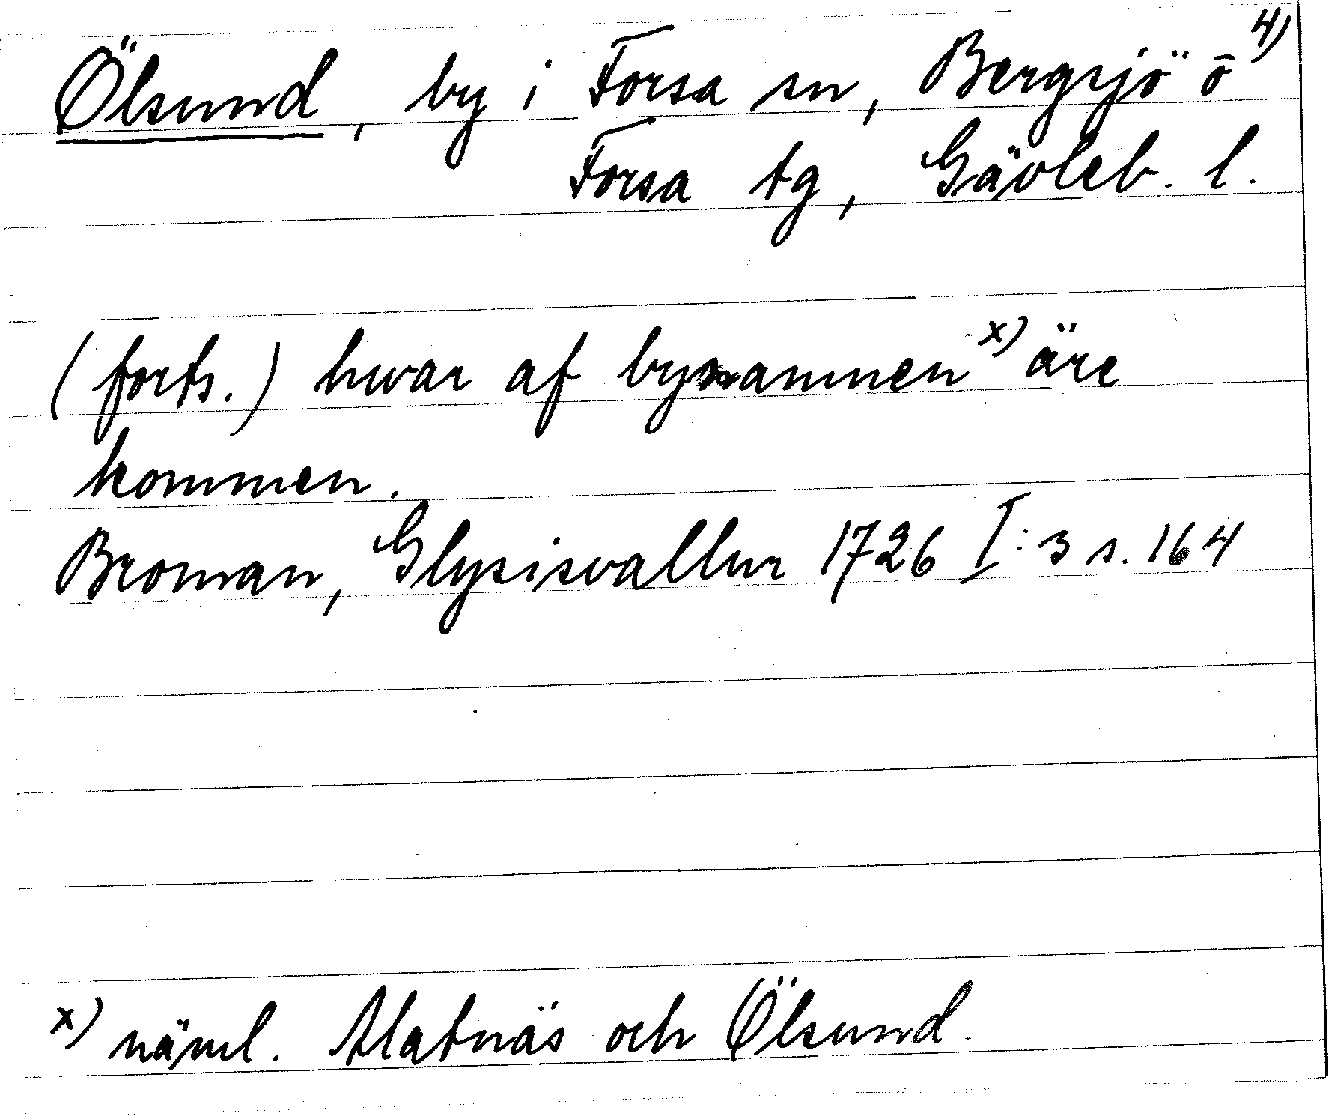 Ölsund, by i Forsa sn, Bergsjö o̅ 4)
Forsa tg, Gävleb. l.
(forts.) hwar af bynamnen x) äre
kommen.
Broman, Glysisvallur 1726 I:3 s. 164
x) näml. Alatnäs och Ölsund.